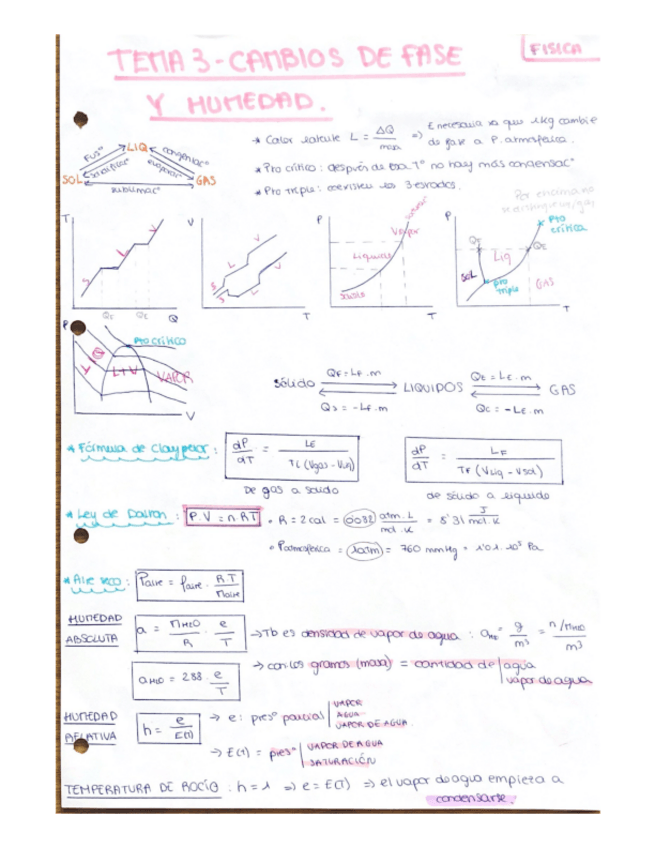 TEMA 3 - CAMBIOS DE FASE
FISICA
Y HUMEDAD.
* Calor latente L = ΔQ / masa => E necesaria xa que 1kg cambie
de fase a P. atmosférica.
LIQ
Fus°
solidificac°
condensac°
evaporac°
SOL
GAS
sublimac°
* Pto crítico: después de esa T° no hay más condensac°
* Pto triple: coexisten los 3 estados.
Por encima no
T
S
L
V
QF
QE
Q
V
S
L
V
S
L
V
T
P
Vapor
Liquido
Sólido
T
P
Pto
crítico
QF
QE
Liq
SOL
Pto
triple
GAS
T
P
Pto crítico
L
G
L+V
VAPOR
V
SÓLIDO
QF = LF . m
QS = - LF . m
LIQUIDOS
QE = LE . m
QC = - LE . m
GAS
* Fórmula de Claypeior :
dP/dT = LE / TE (Vgas - Vliq)
dP/dT = LF / TF (Vliq - Vsol)
De gas a saido
de sólido a líquido
* Ley de Dalton : P.V = n.RT • R = 2 cal = 0'082 atm.L / mol.K = 8'31 J / mol.K
• Patmosférica = 1 atm = 760 mmHg = 1'01.10⁵ Pa
* Aire seco : Paire = ρaire . R T / Maire
HUMEDAD
ABSOLUTA
a = MH2O / R . e / T
→ Tb es densidad de vapor de agua : aH2O = g / m³ = n/MH2O / m³
aH2O = 288 . e / T
→ con los gramos (masa) = cantidad de | agua
vapor de agua
HUMEDAD
RELATIVA
h = e / E(T)
→ e : pres° parcial | VAPOR
AGUA
VAPOR DE AGUA.
→ E(T) = pres° | VAPOR DE AGUA
SATURACIÓN
TEMPERATURA DE ROCÍO : h = 1 => e = E(T) => el vapor de agua empieza a
condensarse.